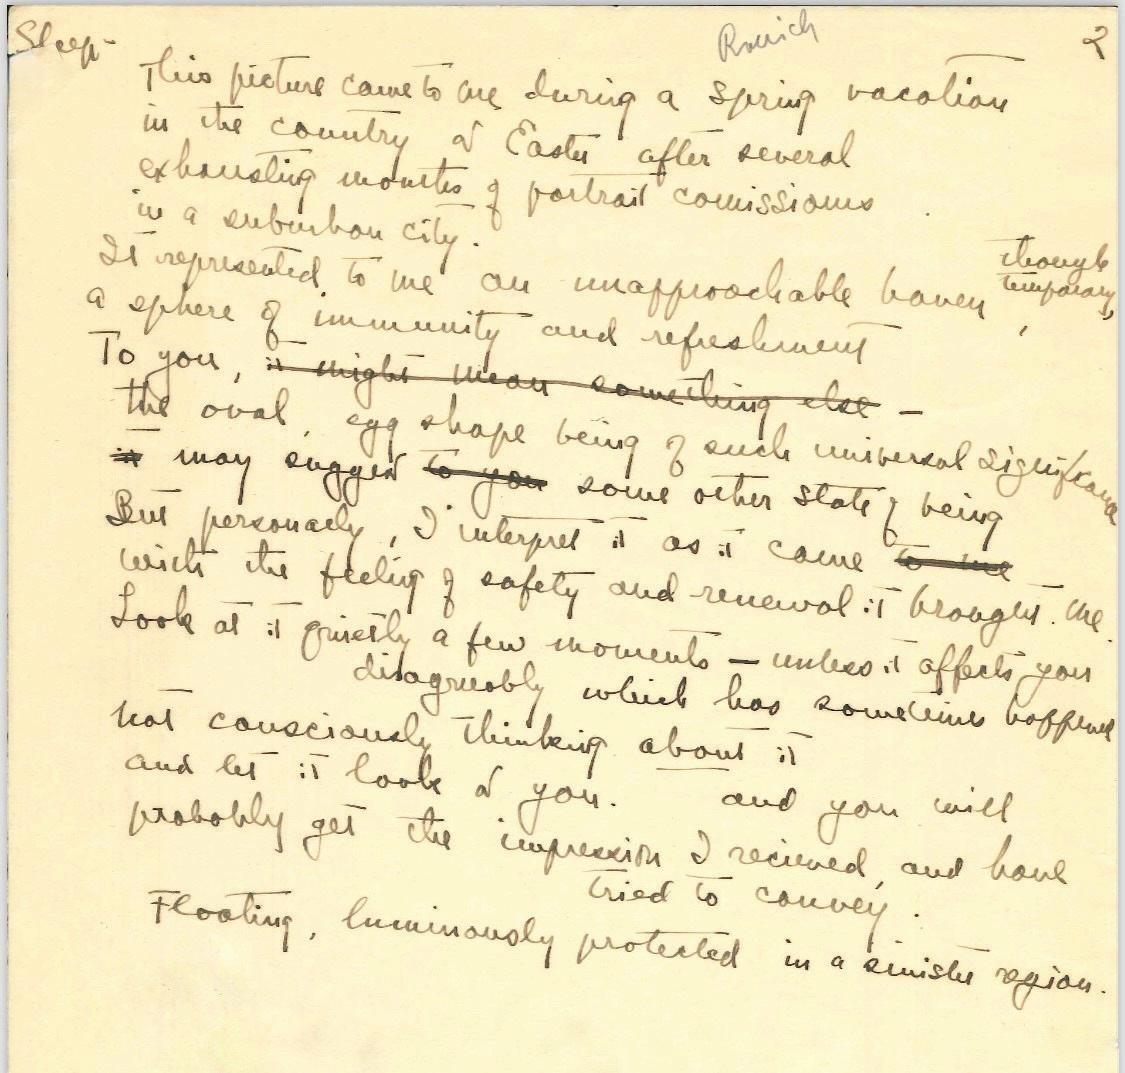 Sleep- 2
This picture came to me during a spring vacation
in the country at Easter after several
exhausting months of portrait comissions
in a suburban city.
It represented to me an unapproachable haven, though temporary,
a sphere of immunity and refreshment
To you, it might mean something else –
the oval, egg shape being of such universal significance
it may suggest to you some other state of being
But personally, I interpret it as it came to me
with the feeling of safety and renewal it brought me.
Look at it quietly a few moments – unless it affects you
disagreeably which has sometimes happened
not consciously thinking about it
and let it look at you. and you will
probably get the impression I recieved, and have
tried to convey.
Floating, luminously protected in a sinister region.